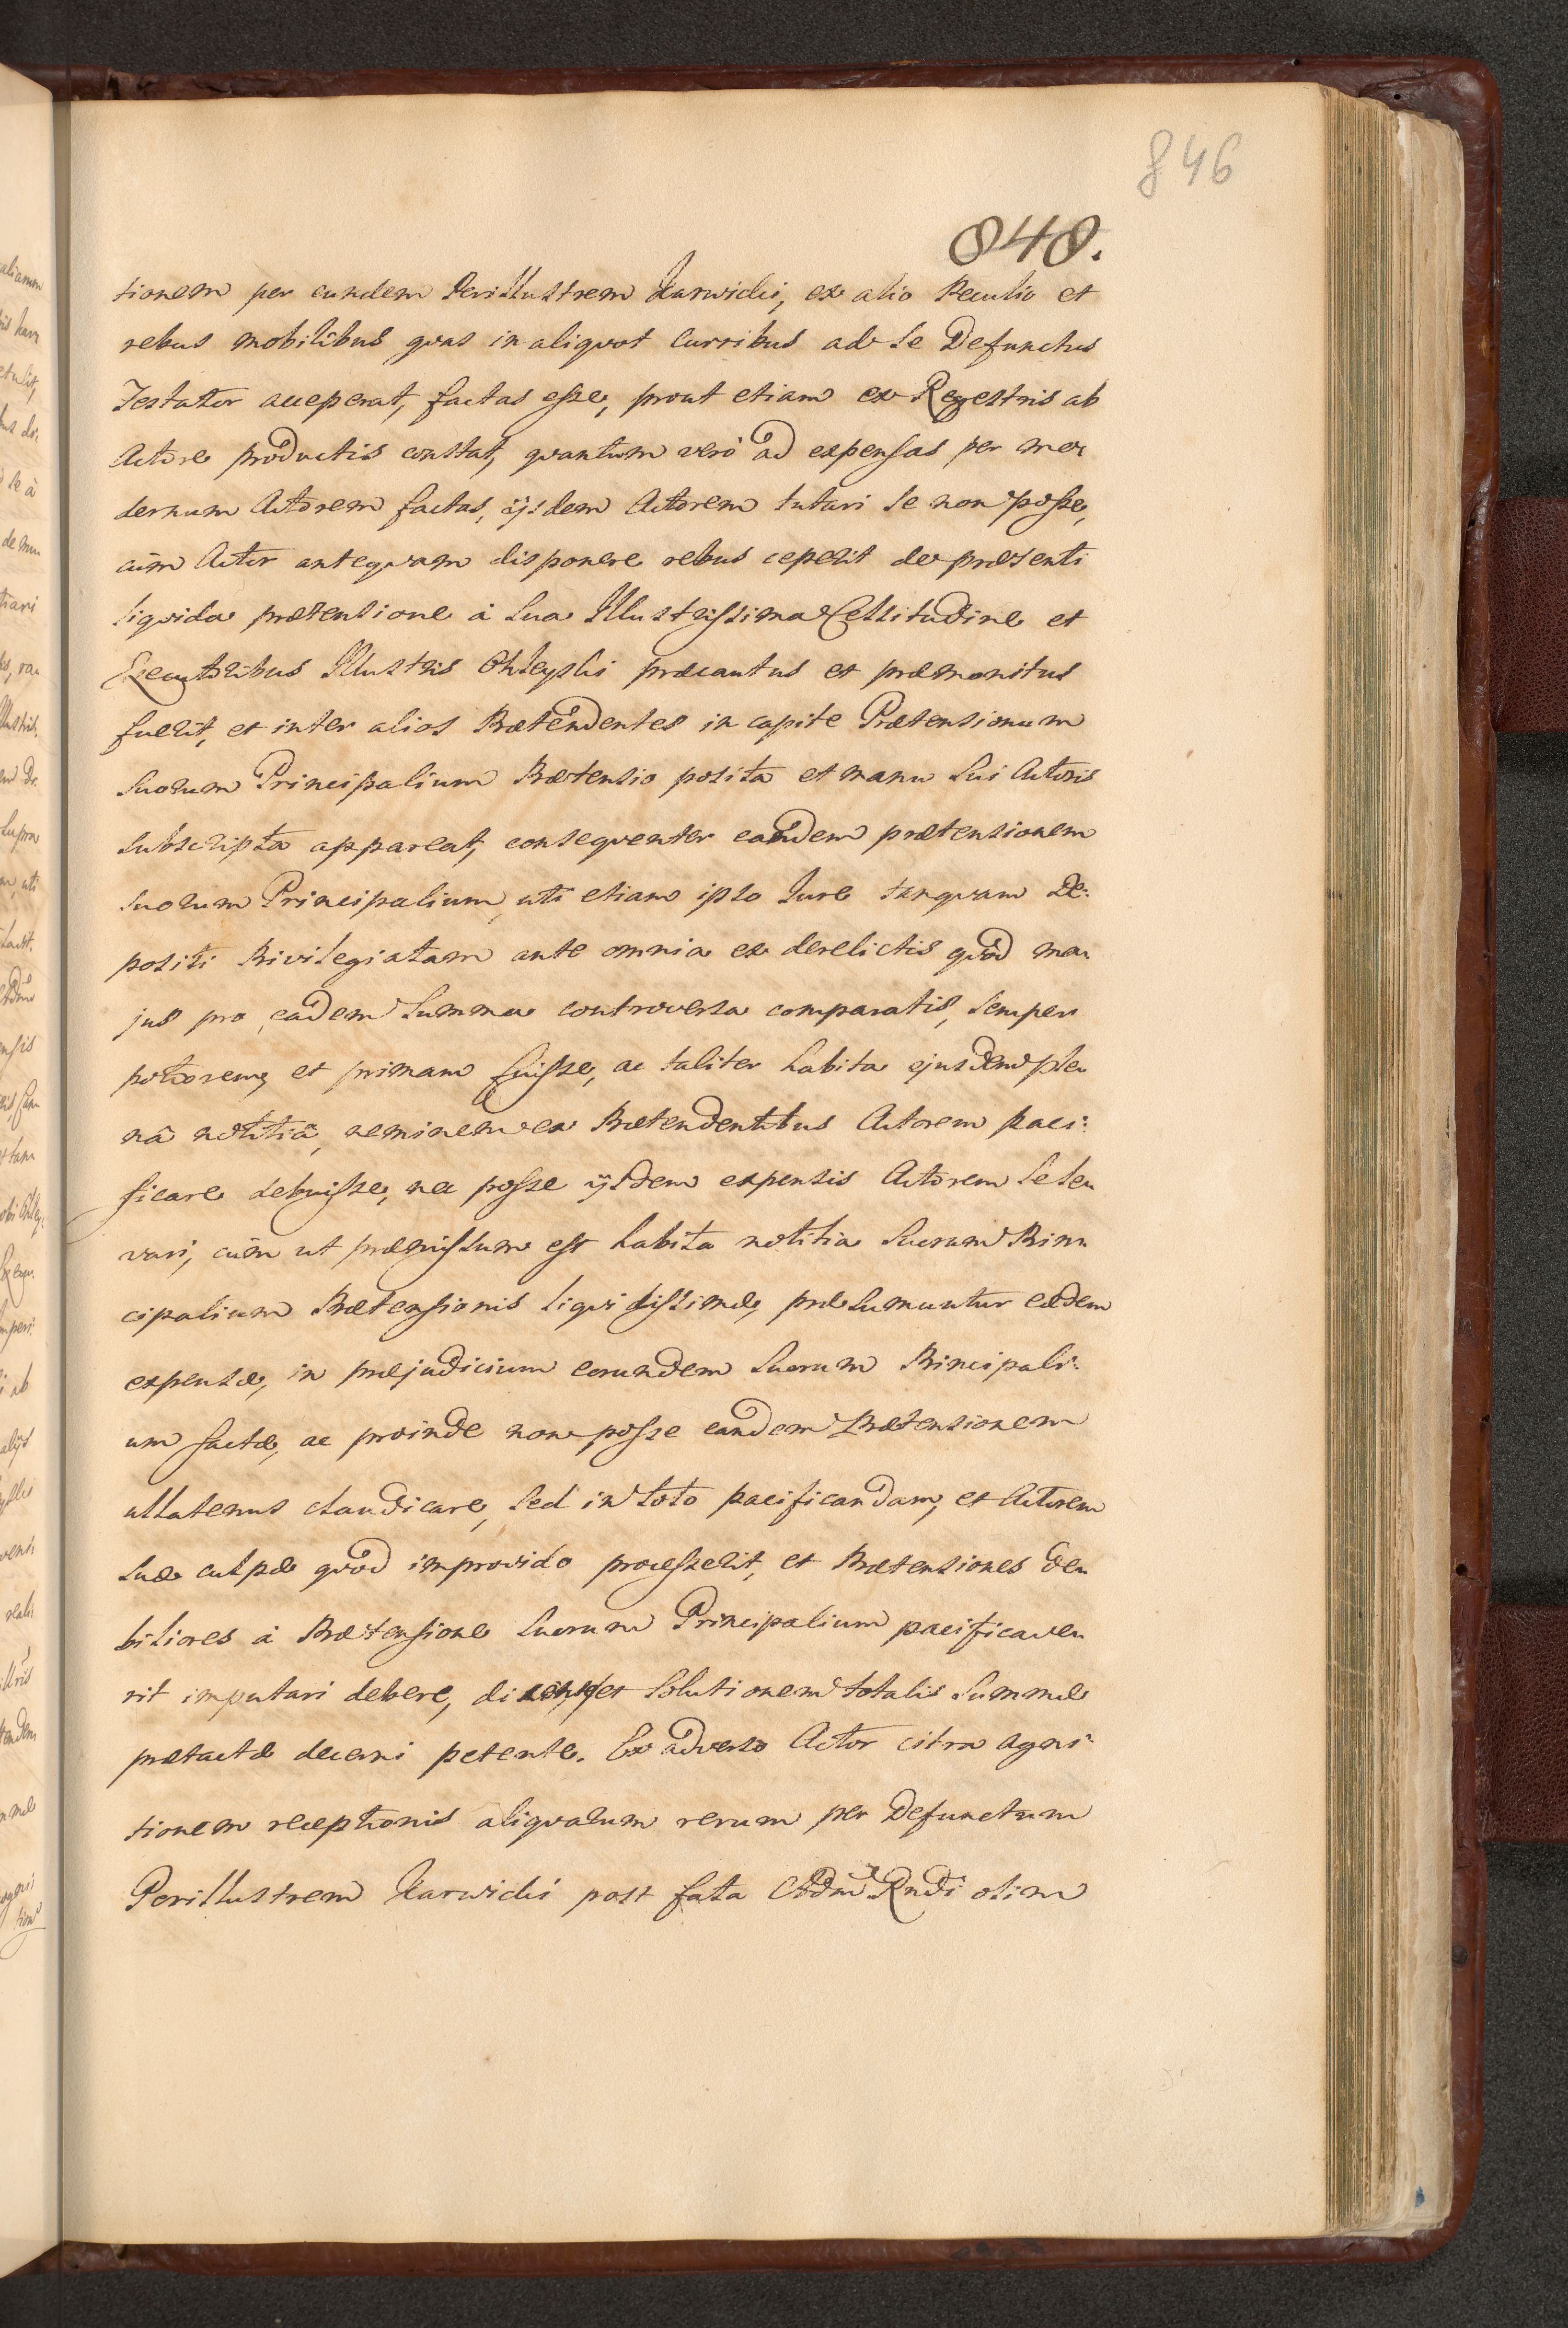 846
848.
tionem per eundem Perillustrem Karwicki, ex alio Peculio et
rebus mobilibus quas in aliquot Curribus ad se Defunctus
Testator acceperat, factas esse, prout etiam ex Regestris ab
Actore productis constat, quantum verò ad expensas per mo
dernum Actorem factas, ijsdem Actorem tutari se non posse,
cùm Actor antequam disponere rebus ceperit de præsenti
liquida prætensione à sua Illustrissima Celsitudine et
Executoribus Illustris præcautus et præmonitus
fuerit, et inter alios Prætendentes in capite Prætensionum
suorum Principalium Prætensio posita et manu sui Actoris
subscripta appareat, consequenter eandem prætensionem
suorum Principalium, uti etiam ipso Jure tanquam De:
positi Privilegiatam ante omnia ex derelictis quòd ma
jus pro eadem Summa controversa comparatis, semper
potiorem, et primam fuisse, ac taliter habita ejusdem ple
nâ notitiâ, neminem ex Prætendentibus Actorem paci:
ficare debuisse, nec posse ijsdem expensis Actorem se le
vari, cùm ut præmissum est habita notitia suorum Prin
cipalium Prætensionis liquidissimæ, præsumuntur eædem
expensæ, in præjudicium eorundem suorum Principali:
um factæ, ac proinde non posse eandem Prætensionem
ullatenus claudicare, sed in toto pacificandam, et Actorem
suæ culpæ quòd improvido processerit, et Prætensiones de
biliores à Prætensione suorum Principalium pacificave
rit imputari debere, solutionem totalis Summæ
prætactæ decerni petente. Ex adverso Actor citra agni:
tionem receptionis aliqualum rerum per Defunctum
Perillustrem Karwicki post fata Rndi olim